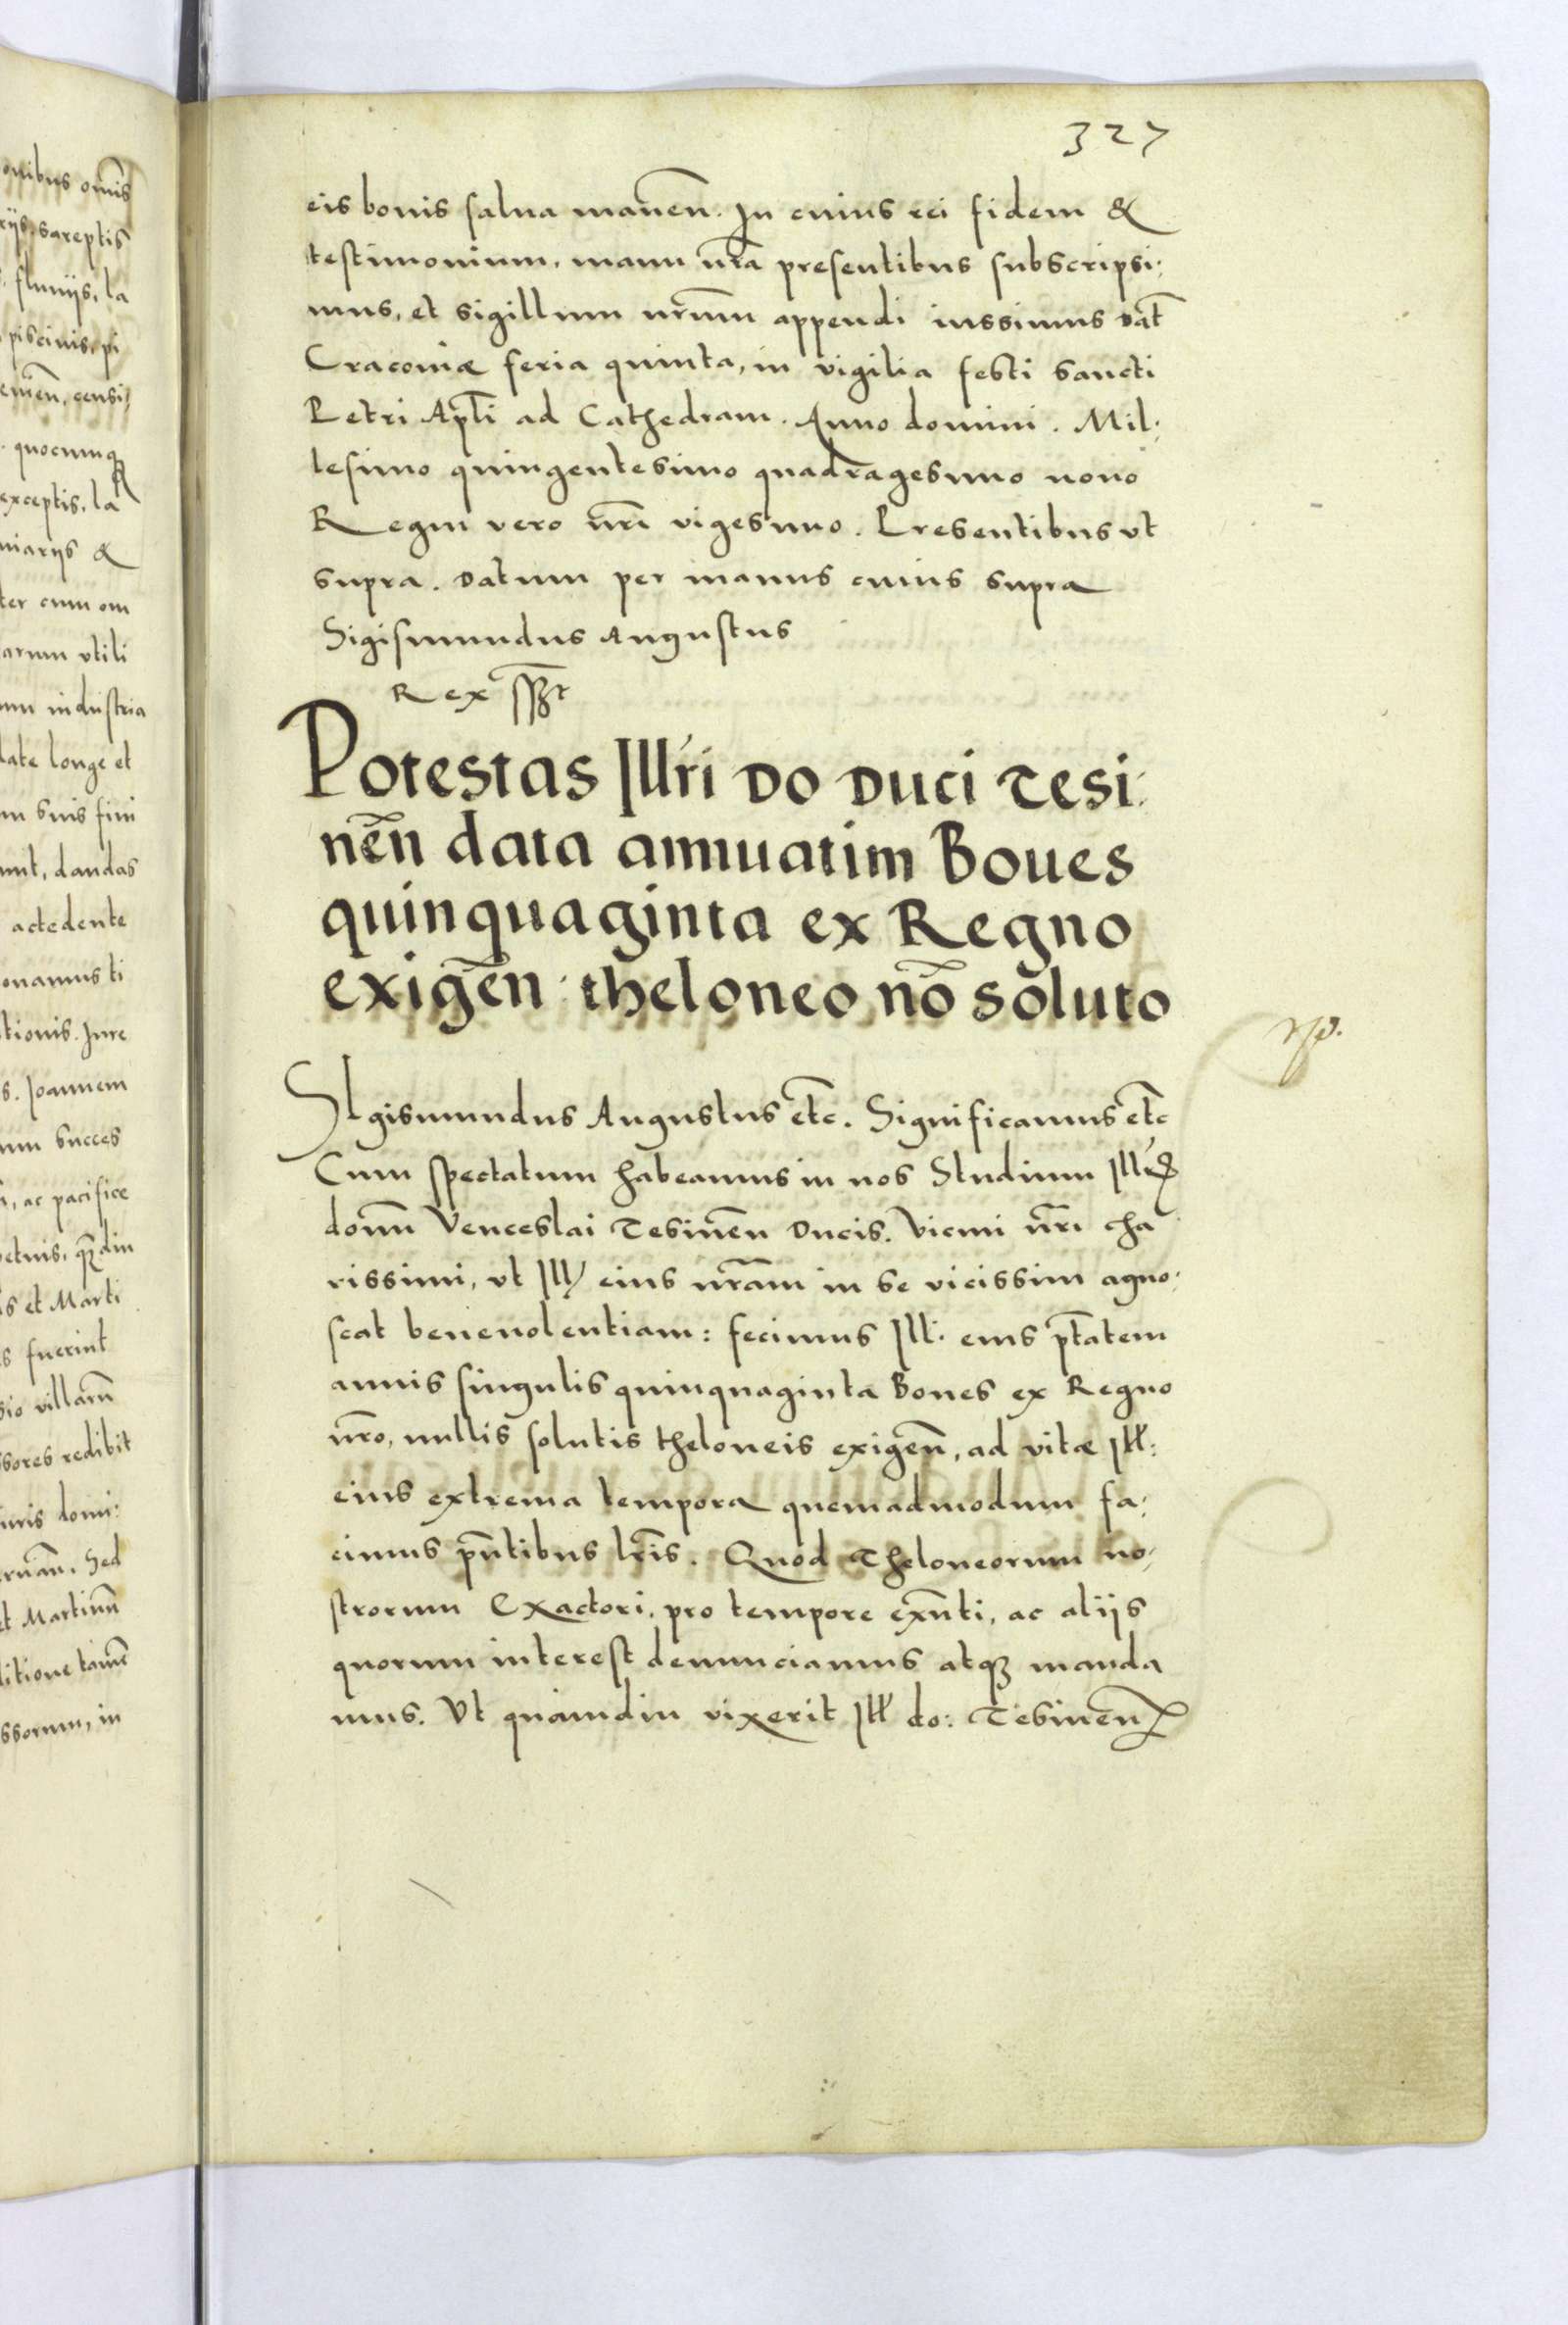 327
eis bonis salua maneñ. In cuius rei fidem &
testimonium, manu nr̃a presentibus subscripsi:
mus, et sigillum nr̃um appendi iussimus Dat̃
Cracouiæ feria quinta, in vigilia festi sancti
Petri Apl̃i ad Cathedram. Anno domini. Mil:
lesimo quingentesimo quadragesimo nono
Regni vero nr̃i vigesimo. Presentibus vt
supra. Datum per manus cuius supra
Sigismundus Augustus
Rex
Potestas Ill̃ri Do Duci Tesi:
nẽn data annuatim Boues
quinquaginta ex Regno
exigẽn theloneo nõ soluto
SIgismundus Augustus etc̃. Significamus etc̃
Cum spectatum habeamus in nos Studium Ill̃ris
domĩ Venceslai Tesineñ Ducis. Vicini nr̃i cha
rissimi, vt Ill eius nr̃am in se vicissim agno:
scat beneuolentiam: fecimus Ill: eius pt̃atem
annis singulis quinquaginta Boues ex Regno
nr̃o, nullis solutis theloneis exigeñ, ad vitæ Ill:
eius extrema tempora quemadmodum fa:
cimus pñtibus lr̃is. Quod Theloneorum no:
strorum Exactori, pro tempore exñti, ac aliis
quorum interest denunciamus atq3 manda
mus. Vt quamdiu vixerit Ill do: Tesineñ
onibus om̃is
sareptis
fluuijs, la
piscinis, pi
censi:
quocumq3
exceptis, la
niarijs &
ter cum om
arum vtili
industria
late longe et
suis fini
unt, dandas
actedente
onamus ti
tionis. Iure
s. Ioannem
succes
ac pacifice
qq̃diu
et Marti
fuerint
sio villarũ
ssores redibit
iuris domi:
Sed
et Martinũ
ditione tamẽ
ssorum, in